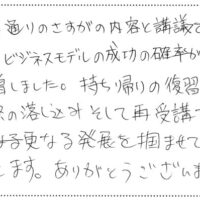 通りのさすがの内容と講議で
ビジネスモデルの成功の確率が
増しました。持ち帰りの復習
の落し込みそして再受講で
更なる発展を掴ませて
します。ありがとうございま